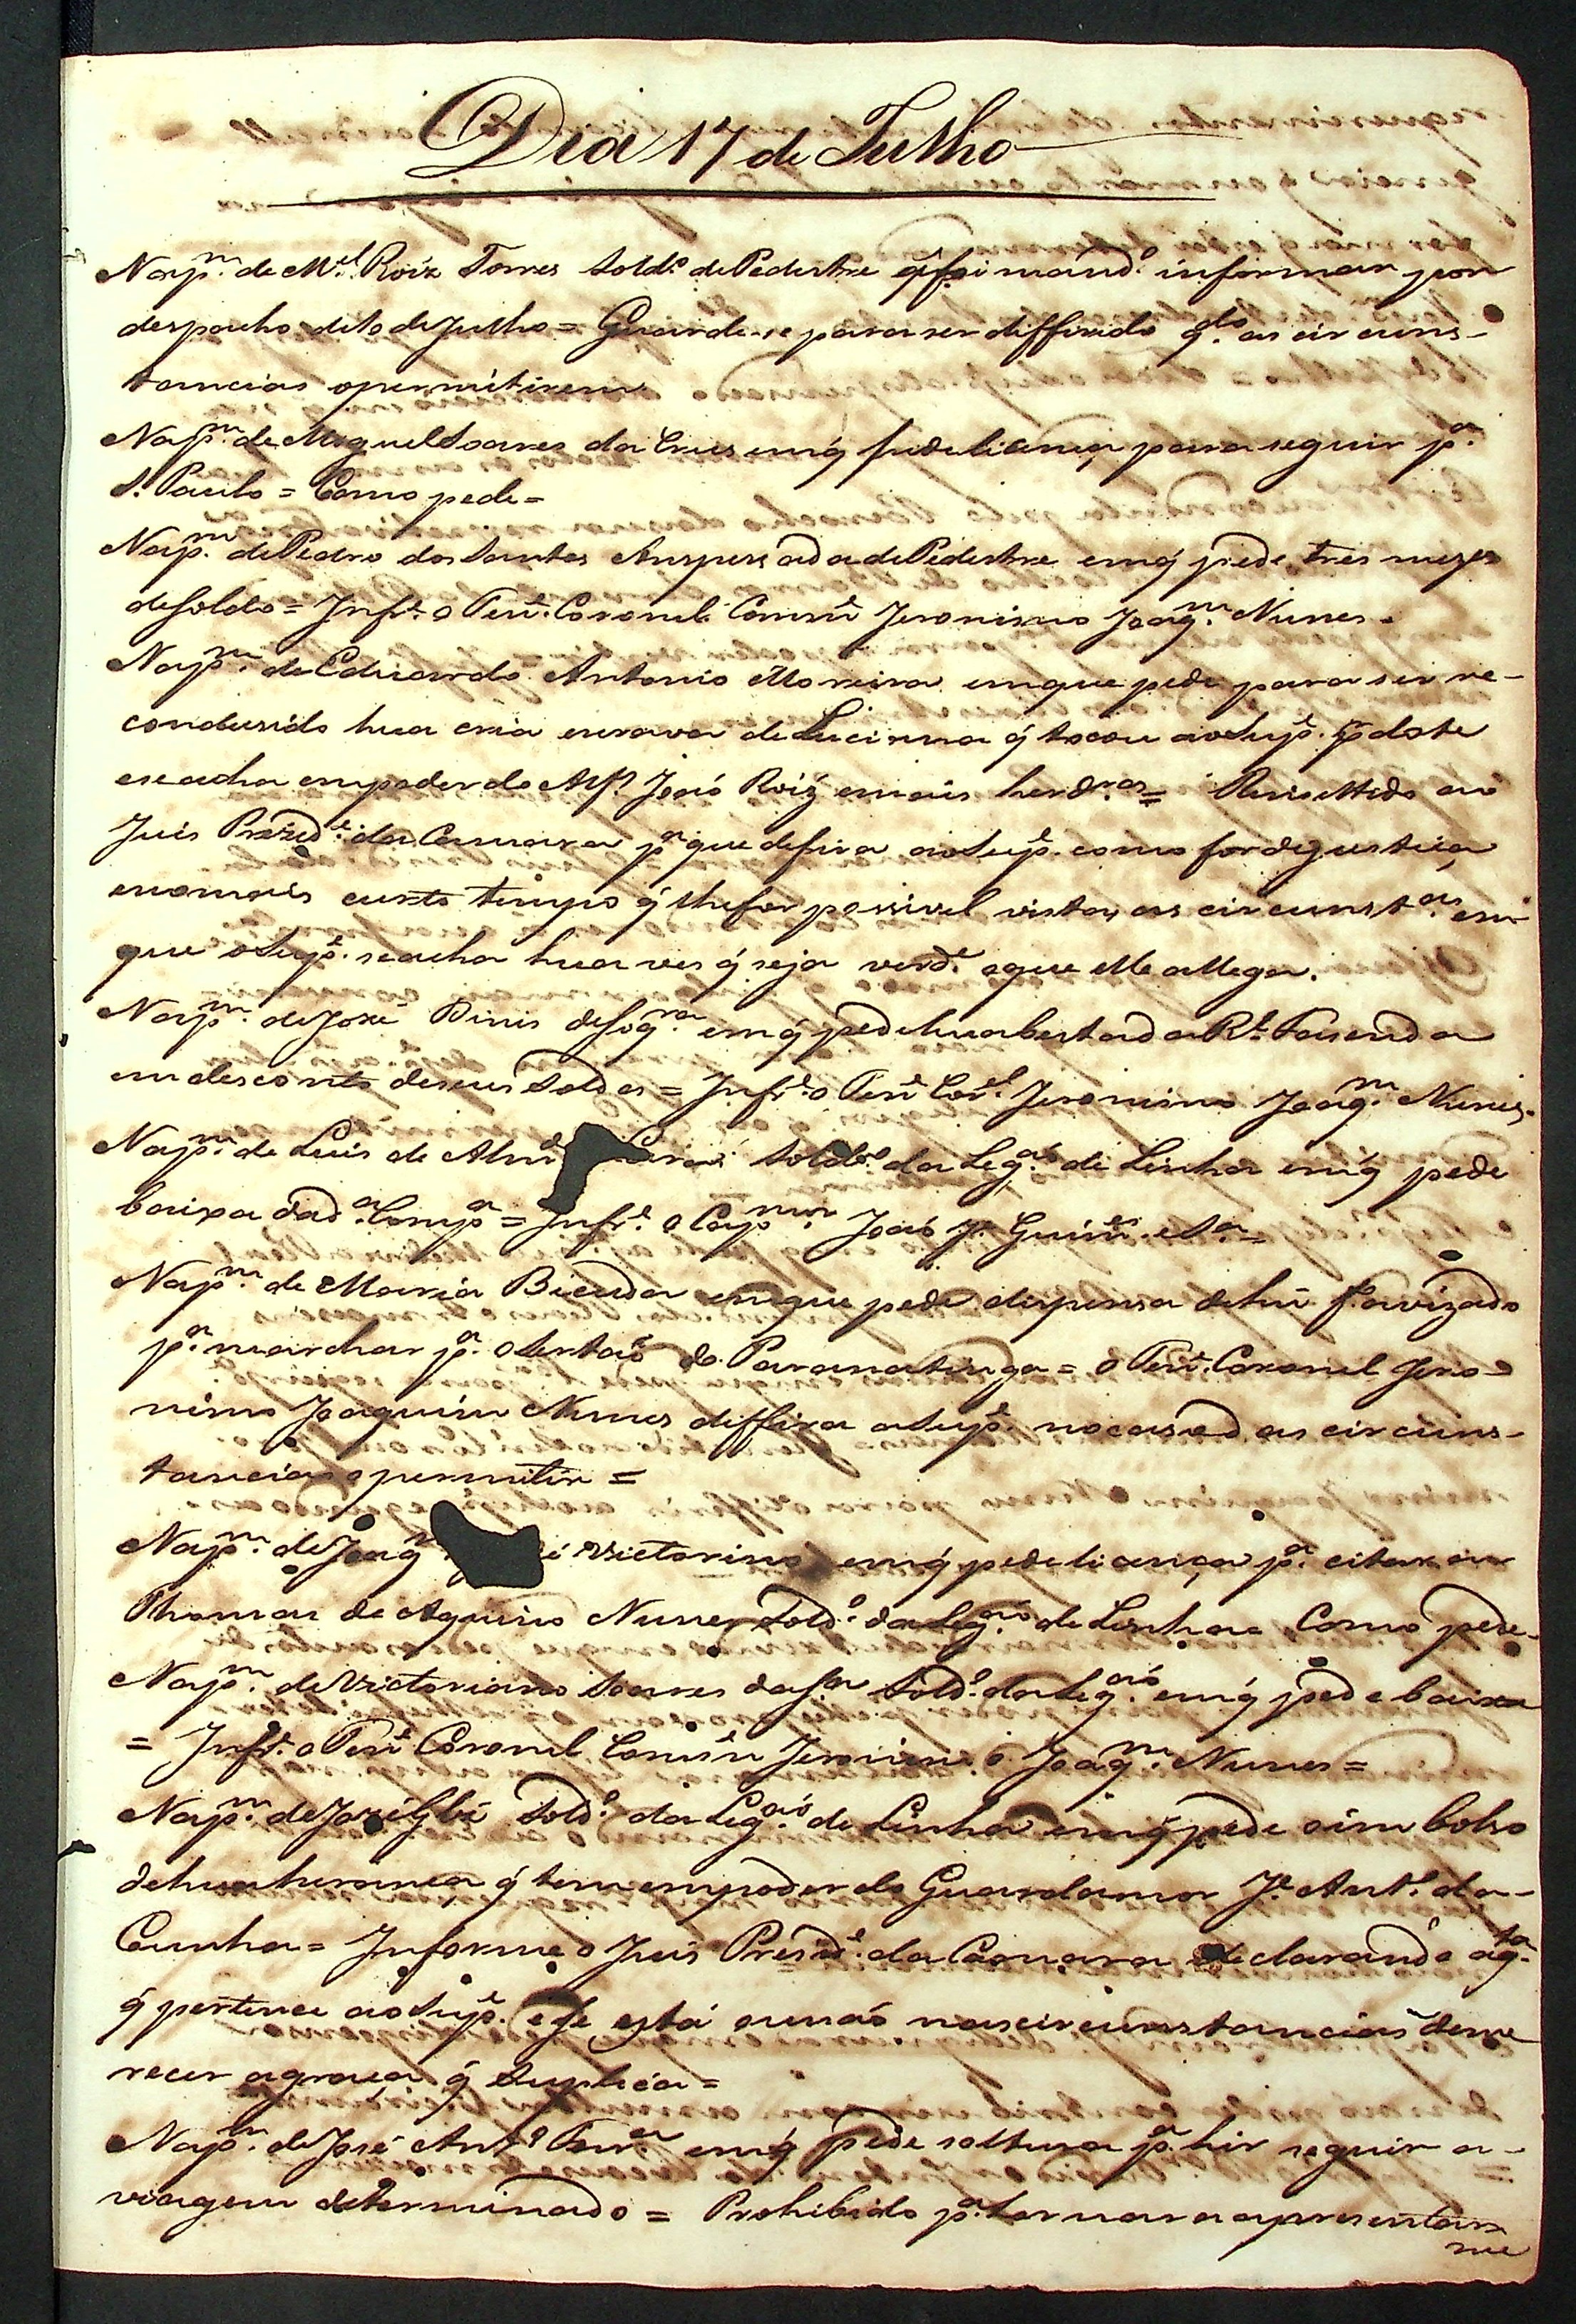 Dia 17 de Julho
Na p.m de M.el Roiz Torres Sold.o de Pedestre q̃ foi mand.o informar por
despacho de 10 de Julho = Guarde-se para ser differido q.do as circuns-
tancias o permitirem
Na p.m de Miguel Soares da Crus em q̃ pede licença para seguir p.a
S. Paulo = Como pede =
Na p.m de Pedro dos Santos Anspessada de Pedestre em q̃ pede tres mezes
de soldo = Inf.e o Ten.e Coronel Comm.e Jeronimo Joaq.m Nunes.
Na p.m de Eduardo Antonio Moreira em que pede para ser re-
condusido hua cria escrava de q̃ tocou ao Sup.e p dote
e se acha em poder do Alf.s João Roiz e mais herd.ros = Remettido ao
Juis Prezid.e da Camara p.a que defira ao Sup.e como for de justiça
e no mais curto tempo q̃ lhe for possivel vistas as circunst.as em
que o Sup.e se acha hua ves q̃ seja verd.e o que elle allega.
Na p.m de José Dinis em q̃ pede hua besta da R.l Fasenda
em desconto de seus Soldos = Inf.e o Ten.e Cor.el Jeronimo Joaq.m Nunes.
Na p.m de Luis de Alm.da Sold.o da Leg.ão de Linha em q̃ pede
baixa da d.a Comp.a = Inf.e o Cap.m mor João J.e Guim.es e S.a =
Na p.m de Maria Bicuda em que pede dispensa de hũ f.o avizado
p.a marchar p.a o Sertaõ do Paranatinga = o Ten.e Coronel Jero-
nimo Joaquim Nunes diffira a Sup.e no caso d as circuns-
tancias o permitir =
Na p.m de Joaq.m Victorino em q̃ pede licença p.a citar a
Thomas de Aquino Nunes Sold.o da Leg.ão de Linha = Como pede.
Na p.m de Victoriano Soares da S.a Sold.o da Leg.ão em q̃ pede baixa
= Inf.e o Ten.e Coronel Comm.e Jeronimo Joaq.m Nunes =
Na p.m de José Sold.o da Leg.ão de Linha em q̃ pede o imbolso
de hua herança q̃ tem em poder do Guardamor J.e Ant.o da
Cunha = Informe o Juis Presid.e da Camara declarando a q.ta
q̃ pertence ao Sup.e e se está ou naõ nas circunstancias de me
recer a graça q̃ Suplica =
Na p.m de José Ant.o Ferr.a em q̃ pede soltura p.a hir seguir a
viagem determinado = Prohibido p.a tornar a apresentar
me